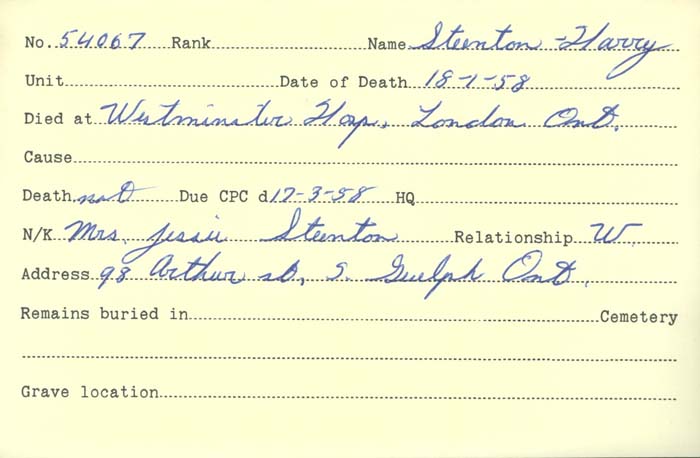 No. 54067 Rank Name Steenton - Harry
Unit Date of Death 18-1-58
Died at Westminster Hosp. London Ont.
Cause
Death not Due CPC d 17-3-58 HQ
N/K Mrs. Jessie Steenton Relationship W.
Address 98 Arthur st, S. Guelph Ont.
Remains buried in Cemetery
Grave location